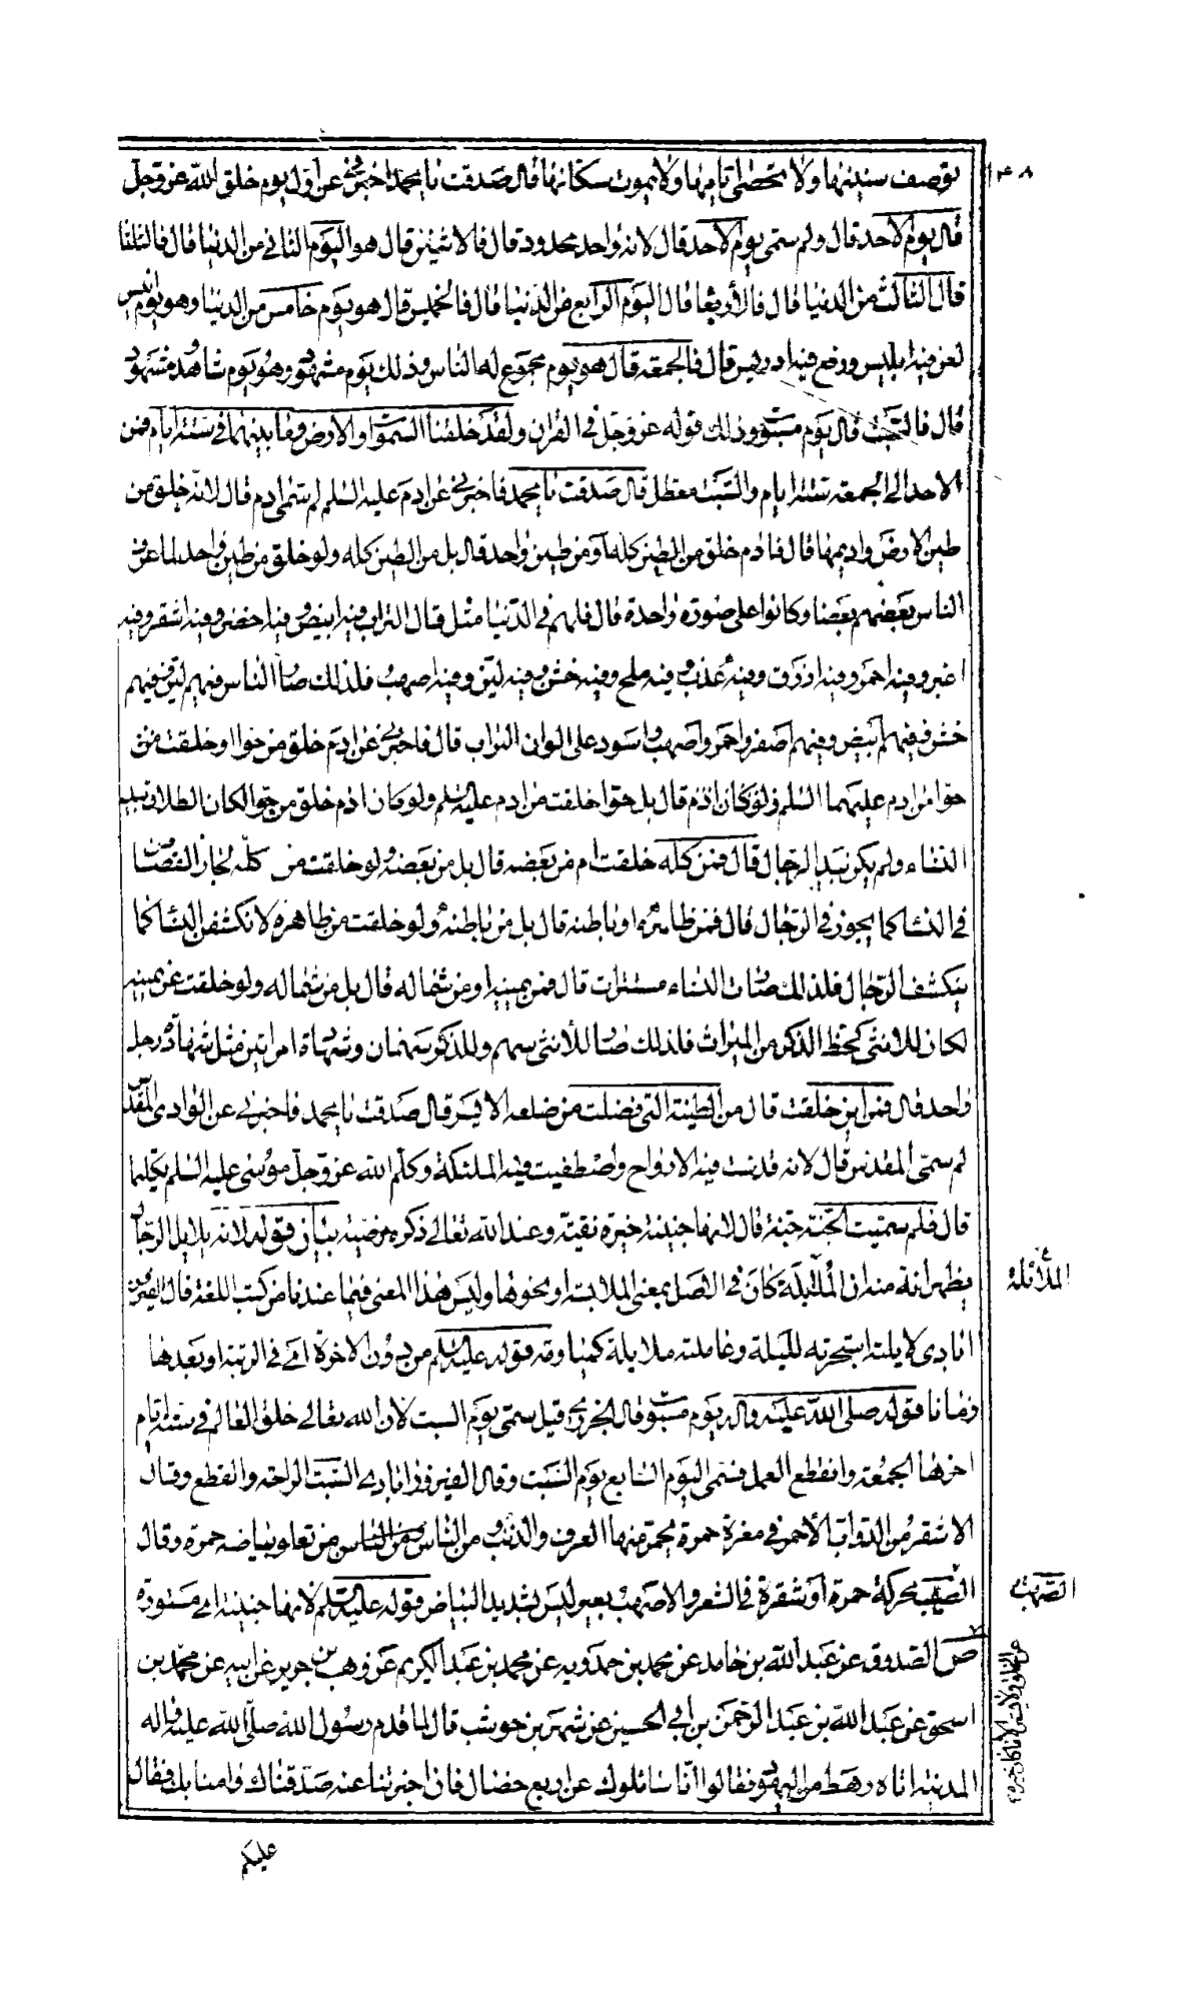 ١٣٨
توصف سنينها ولا تحصى ايامها ولا يموت سكانها قال صدقت يا محمد اخبرني عن اول يوم خلق الله عز وجل
قال يوم الاحد قال ولم سمى يوم الاحد قال لانه واحد محدود قال فالاثنين قال هو اليوم الثاني من الدنيا قال فالثلثا
قال الثالث من الدنيا قال فالأربعا قال اليوم الرابع من الدنيا قال فالخميس قال هو يوم خامس من الدنيا وهو يوم انيس
لعن فيه ابليس ورفع فيه ادريس قال فالجمعة قال هو يوم مجموع له الناس وذلك يوم مشهود وهو يوم شاهد ومشهود
قال فالسبت قال يوم مسبوت وذلك قوله عز وجل في القران ولقد خلقنا السموات والارض وما بينهما في ستة ايام فمن
الاحد الى الجمعة ستة ايام والسبت معطل قال صدقت يا محمد فاخبرني عن ادم عليه السلم لم سمى ادم قال لانه خلق من
طين الارض واديمها قال فادم خلق من الطين كله او من طين واحد قال بل من الطين كله ولو خلق من طين واحد لما عرف
الناس بعضهم بعضا وكانوا على صورة واحدة قال فلهم في الدنيا مثل قال التراب فيه ابيض وفيه اخضر وفيه اشقر وفيه
اغبر وفيه احمر وفيه ازرق وفيه عذب وفيه ملح وفيه خشن وفيه لين وفيه اصهب فلذلك صار الناس فيهم لين وفيهم
خشن وفيهم ابيض وفيهم اصفر واحمر واصهب واسود على الوان التراب قال فاخبرني عن ادم خلق من حوا او خلقت من
حوا من ادم عليهما السلم ولو كان ادم قال بل حوا خلقت من ادم عليه السلم ولو كان ادم خلق من حوا لكان الطلاق بيد
النساء ولم يكن بيد الرجال قال فمن كله خلقت ام من بعضه قال بل من بعضه ولو خلقت من كله لجاز القصاص
في النساء كما يجوز في الرجال قال فمن ظاهره او باطنه قال بل من باطنه ولو خلقت من ظاهره لانكشفن النساء كما
ينكشف الرجال فلذلك صارت النساء مستترات قال فمن يمينه او من شماله قال بل من شماله ولو خلقت عن يمينه
لكان للانثى كحظ الذكر من الميراث فلذلك صار للأنثى سهم وللذكر سهمان وشهادة امراتين مثل شهادة رجل
واحد قال فمن اين خلقت قال من الطينة التي فضلت من ضلعه الايسر قال صدقت يا محمد فاخبرني عن الوادى المقدس
لم سمى المقدس قال لانه قدست فيه الارواح واصطفيت فيه الملئكة وكلم الله عز وجل موسى عليه السلم تكليما
قال فلم سميت الجنة جنة قال لانها جنينة خيرة نقية وعند الله تعالى ذكره مرضية بيان قوله لانه بلابل الرجال
يظهر انه منه ان البلبلة كان في الاصل بمعنى الملابسة او نحوها وليس هذا المعنى فيما عندنا من كتب اللغة قال الفيروز
ابادى لايلته استجرته لليلة وعاملته ملايلة كمياومه قوله عليه السلم من دون الاخرة اى في الرتبة او بعدها
واما قوله صلى الله عليه واله يوم مسبوت قال الجزري قيل سمى يوم السبت لان الله تعالى خلق العالم في ستة ايام
اخرها الجمعة وانقطع العمل فسمى اليوم السابع يوم السبت وقال الفيروزابادى السبت الراحة والقطع وقال
الاشقر من الدواب الاحمر في مغرة حمرة يحمر منها العرف والذنب ومن الناس من تعلو بياضه حمرة وقال
الصهب محركة حمرة او شقرة في الشعر والاصهب بعير ليس بشديد البياض قوله عليه السلم لانها جنينة اى مستورة
ص الصدوق عن عبد الله بن حامد عن محمد بن حمدويه عن محمد بن عبد الكريم عن وهب بن جرير عن ابيه عن محمد بن
اسحق عن عبد الله بن عبد الرحمن بن ابي الحسين عن شهر بن حوشب قال لما قدم رسول الله صلى الله عليه واله
المدينة اتاه رهط من اليهود فقالوا انا سائلوك عن اربع خصال فان اخبرتنا عنه صدقناك وامنا بك فقال
الملائلة
الصهبة
عليكم